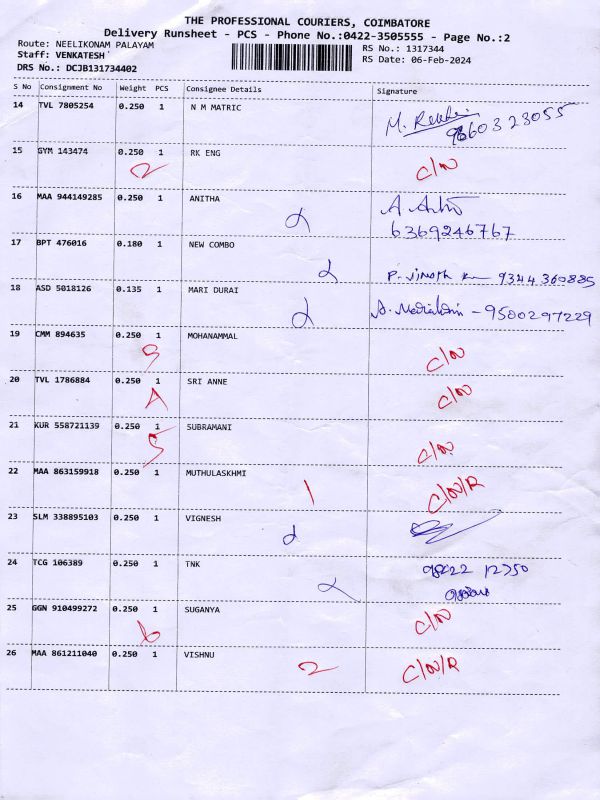 THE PROFESSIONAL COURIERS, COIMBATORE
Delivery Runsheet - PCS - Phone No.:0422-3505555 - Page No.:2
Route: NEELIKONAM PALAYAM RS No.: 1317344
Staff: VENKATESH RS Date: 06-Feb-2024
DRS No.: DCJB131734402
S No Consignment No Weight PCS Consignee Details Signature
14 TVL 7805254 0.250 1 N M MATRIC M.
9360323055
15 GYM 143474 0.250 1 RK ENG C/N
2
16 MAA 944149285 0.250 1 ANITHA A
6369246767
17 BPT 476016 0.180 1 NEW COMBO
P. 9344360885
18 ASD 5018126 0.135 1 MARI DURAI A. - 9500297229
19 CMM 894635 0.250 1 MOHANAMMAL C/N
20 TVL 1786884 0.250 1 SRI ANNE C/N
21 KUR 558721139 0.250 1 SUBRAMANI C/N
5
22 MAA 863159918 0.250 1 MUTHULASKHMI 1 C/N/R
23 SLM 338895103 0.250 1 VIGNESH
24 TCG 106389 0.250 1 TNK 98222 12350
25 GGN 910499272 0.250 1 SUGANYA C/N
6
26 MAA 861211040 0.250 1 VISHNU 2 C/N/R